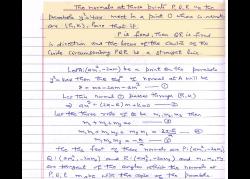 The normals at three points P, Q, R of the
parabola y²=4ax meet in a point O whose co-ordinates
are (h, k), Prove that if
P is fixed, then QR is fixed
in direction and the locus of the centre of the
circle circumscribing PQR is a straight line.
Let A(am², -2am) be a point on the parabola
y²=4ax then the eqn of normal at A will be
y = mx-2am-am³ — ①
Let this normal ① passes through (h, k)
⇒ am³+(2a-h)m+k=0 — ②
Let the three roots of ② be m₁, m₂, m₃ then
m₁+m₂+m₃=0 — ③
m₁m₂+m₂m₃+m₃m₁ = — ④
the feet of these normals are P: (am₁², -2am₁)
Q: (am₂², -2am₂) and R: (am₃², -2am₃) and m₁, m₂, m₃
are tangents of the angles which the normals at
P, Q, R make with the axis of the parabola